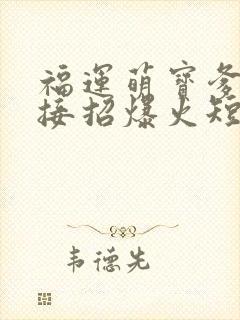 福運萌寶爹
接招爆火短
韦德先